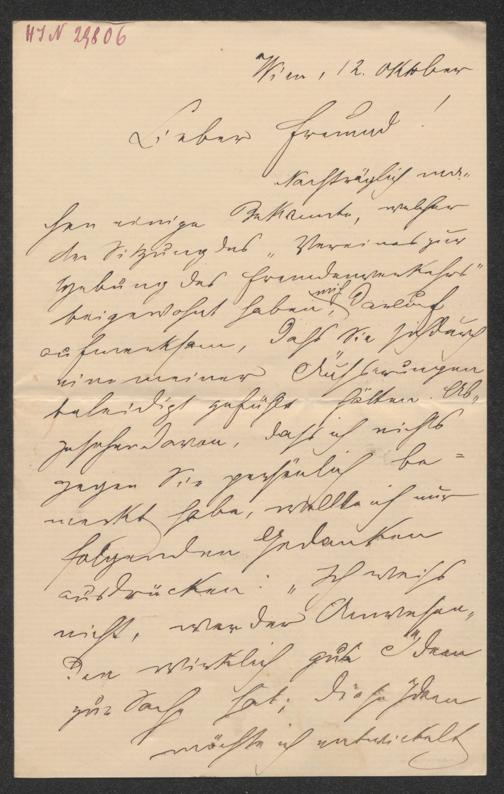 HIN 29806
Wien, 12. Oktober
Lieber Freund!
Nachträglich ma-
chen einige Bekannte, welche
der Sitzung des „Vereines zur
Hebung des Fremdenverkehrs"
beigewohnt haben, mich darauf
aufmerksam, daß Sie sich durch
eine meiner Äußerungen
beleidigt gefühlt hätten. Ab-
gesehen davon, daß ich nichts
gegen Sie persönlich be=
merkt habe, wollte ich nur
folgenden Gedanken
ausdrücken: „Ich weiß
nicht, wer der Anwesen-
den wirklich gute Ideen
zur Sache hat; diese Ideen
möchte ich entwickelt